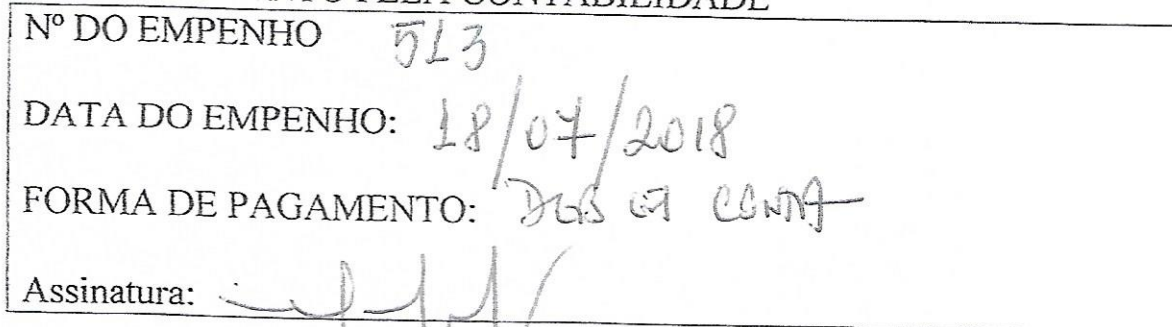 PELA CONTABILIDADE
Nº DO EMPENHO 513
DATA DO EMPENHO: 18/07/2018
FORMA DE PAGAMENTO: DEB EM CONTA
Assinatura: